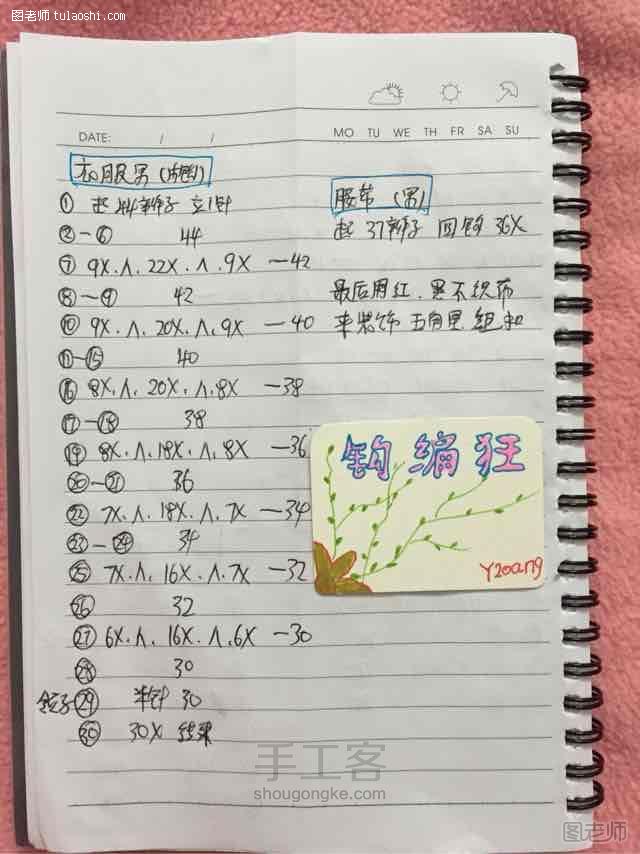 图老师 tulaoshi.com
DATE: / /
MO TU WE TH FR SA SU
衣服男
① 起 44辫子 立1针
②—⑥ 44
⑦ 9X.∧.22X.∧.9X —42
⑧—⑨ 42
⑩ 9X.∧.20X.∧.9X —40
⑪—⑮ 40
⑯ 8X.∧.20X.∧.8X —38
⑰—⑱ 38
⑲ 8X.∧.18X.∧.8X —36
⑳—㉑ 36
㉒ 7X.∧.18X.∧.7X —34
㉓—㉔ 34
㉕ 7X.∧.16X.∧.7X —32
㉖ 32
㉗ 6X.∧.16X.∧.6X —30
㉘ 30
㉙ 半针 30
㉚ 30X 结束
腰带 (男)
起 37辫子 回钩 36X
最后用红.黑不织布
来装饰 五角星 组和
钩编狂
Yzoang
手工客
shougongke.com
图老师